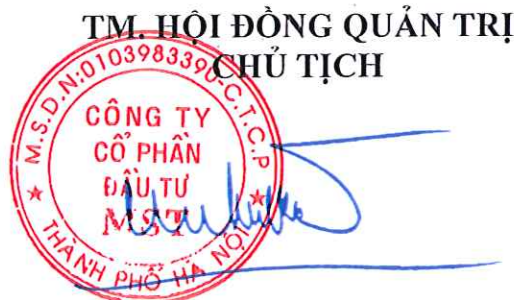 TM. HỘI ĐỒNG QUẢN TRỊ
CHỦ TỊCH
M.S.D.N:0103983390-C.T.C.P
CÔNG TY
CỔ PHẦN
ĐẦU TƯ
MST
THÀNH PHỐ HÀ NỘI